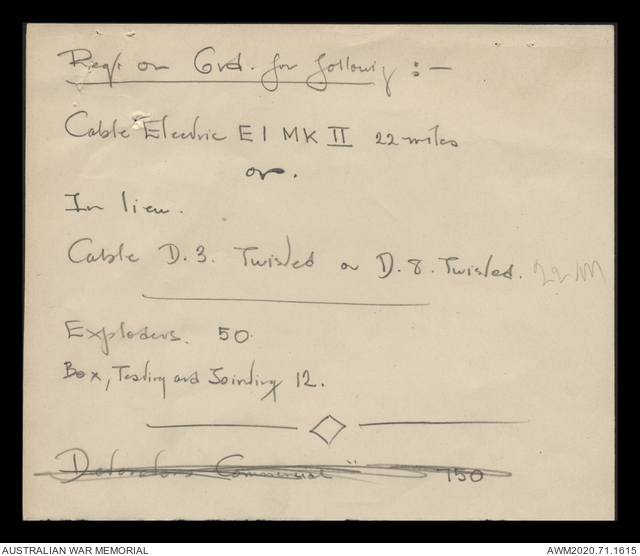 Reqt on Ord. for following :—
Cable Electric E I MK II 22 miles
or.
In lieu.
Cable D.3. Twisted or D.8. Twisted. 22 M
Exploders. 50.
Box, Testing and Jointing 12.
Detonators Commercial " 150
AUSTRALIAN WAR MEMORIAL
AWM2020.71.1615